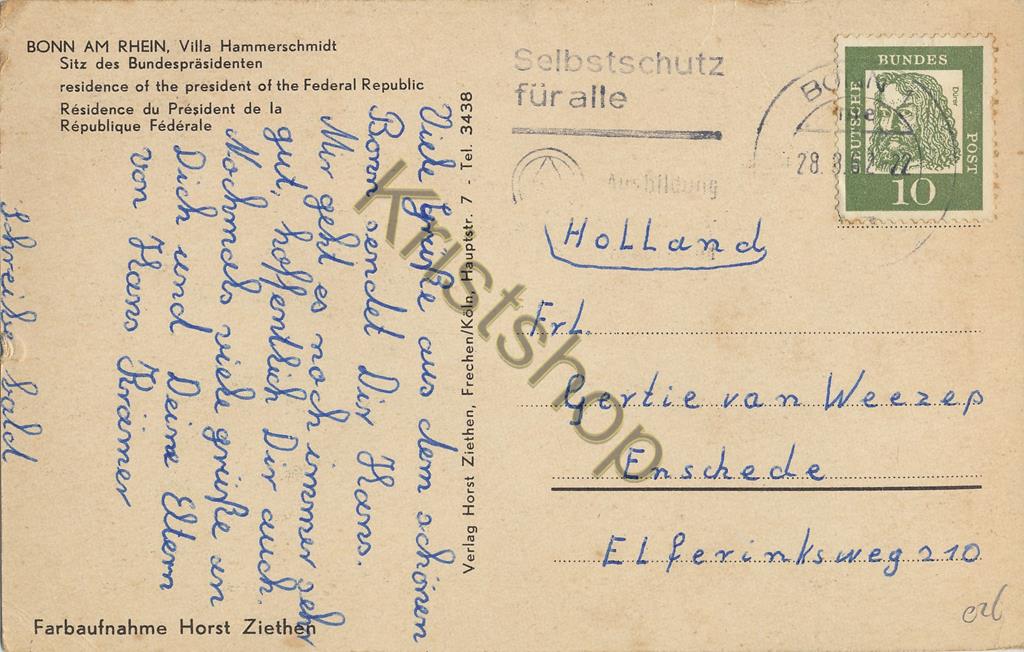 BONN AM RHEIN, Villa Hammerschmidt
Sitz des Bundespräsidenten
residence of the president of the Federal Republic
Résidence du Président de la
République Fédérale
Viele Grüße aus dem schönen
Bonn sendet Dir Hans.
Mir geht es noch immer sehr
gut, hoffentlich Dir auch.
Nochmals viele grüße an
Dich und Deine Eltern
von Hans Krämer
schreibe bald
Farbaufnahme Horst Ziethen
Verlag Horst Ziethen, Frechen/Köln, Hauptstr. 7 - Tel. 3438
Selbstschutz
für alle
Ausbildung
BONN
28.3.62
DEUTSCHE
BUNDES
POST
Dürer
10
Holland
Frl.
Gertie van Weezep
Enschede
Elferinksweg 210
Kristshop